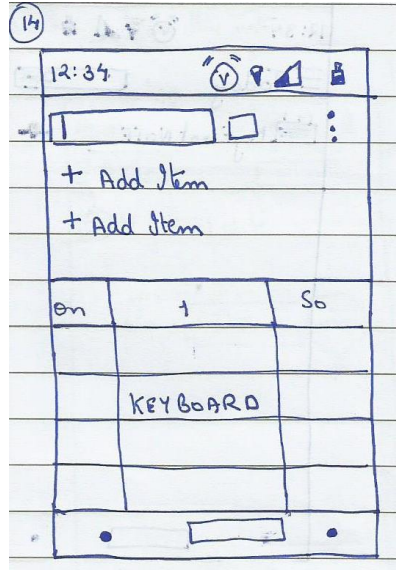 14
12:34 V
+ Add Item
+ Add Item
on 1 So
KEYBOARD